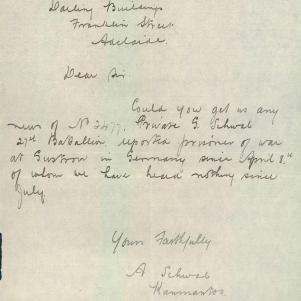 Darling Buildings
Franklin Street
Adelaide.
Dear Sir
Could you get us any
news of No 2477. Private G. Schwab
27th Battalion reported prisoner of war
at Gustrow in Germany since April 8th
of whom we have heard nothing since
July.
Yours Faithfully
A Schwab
Hanmantoo.